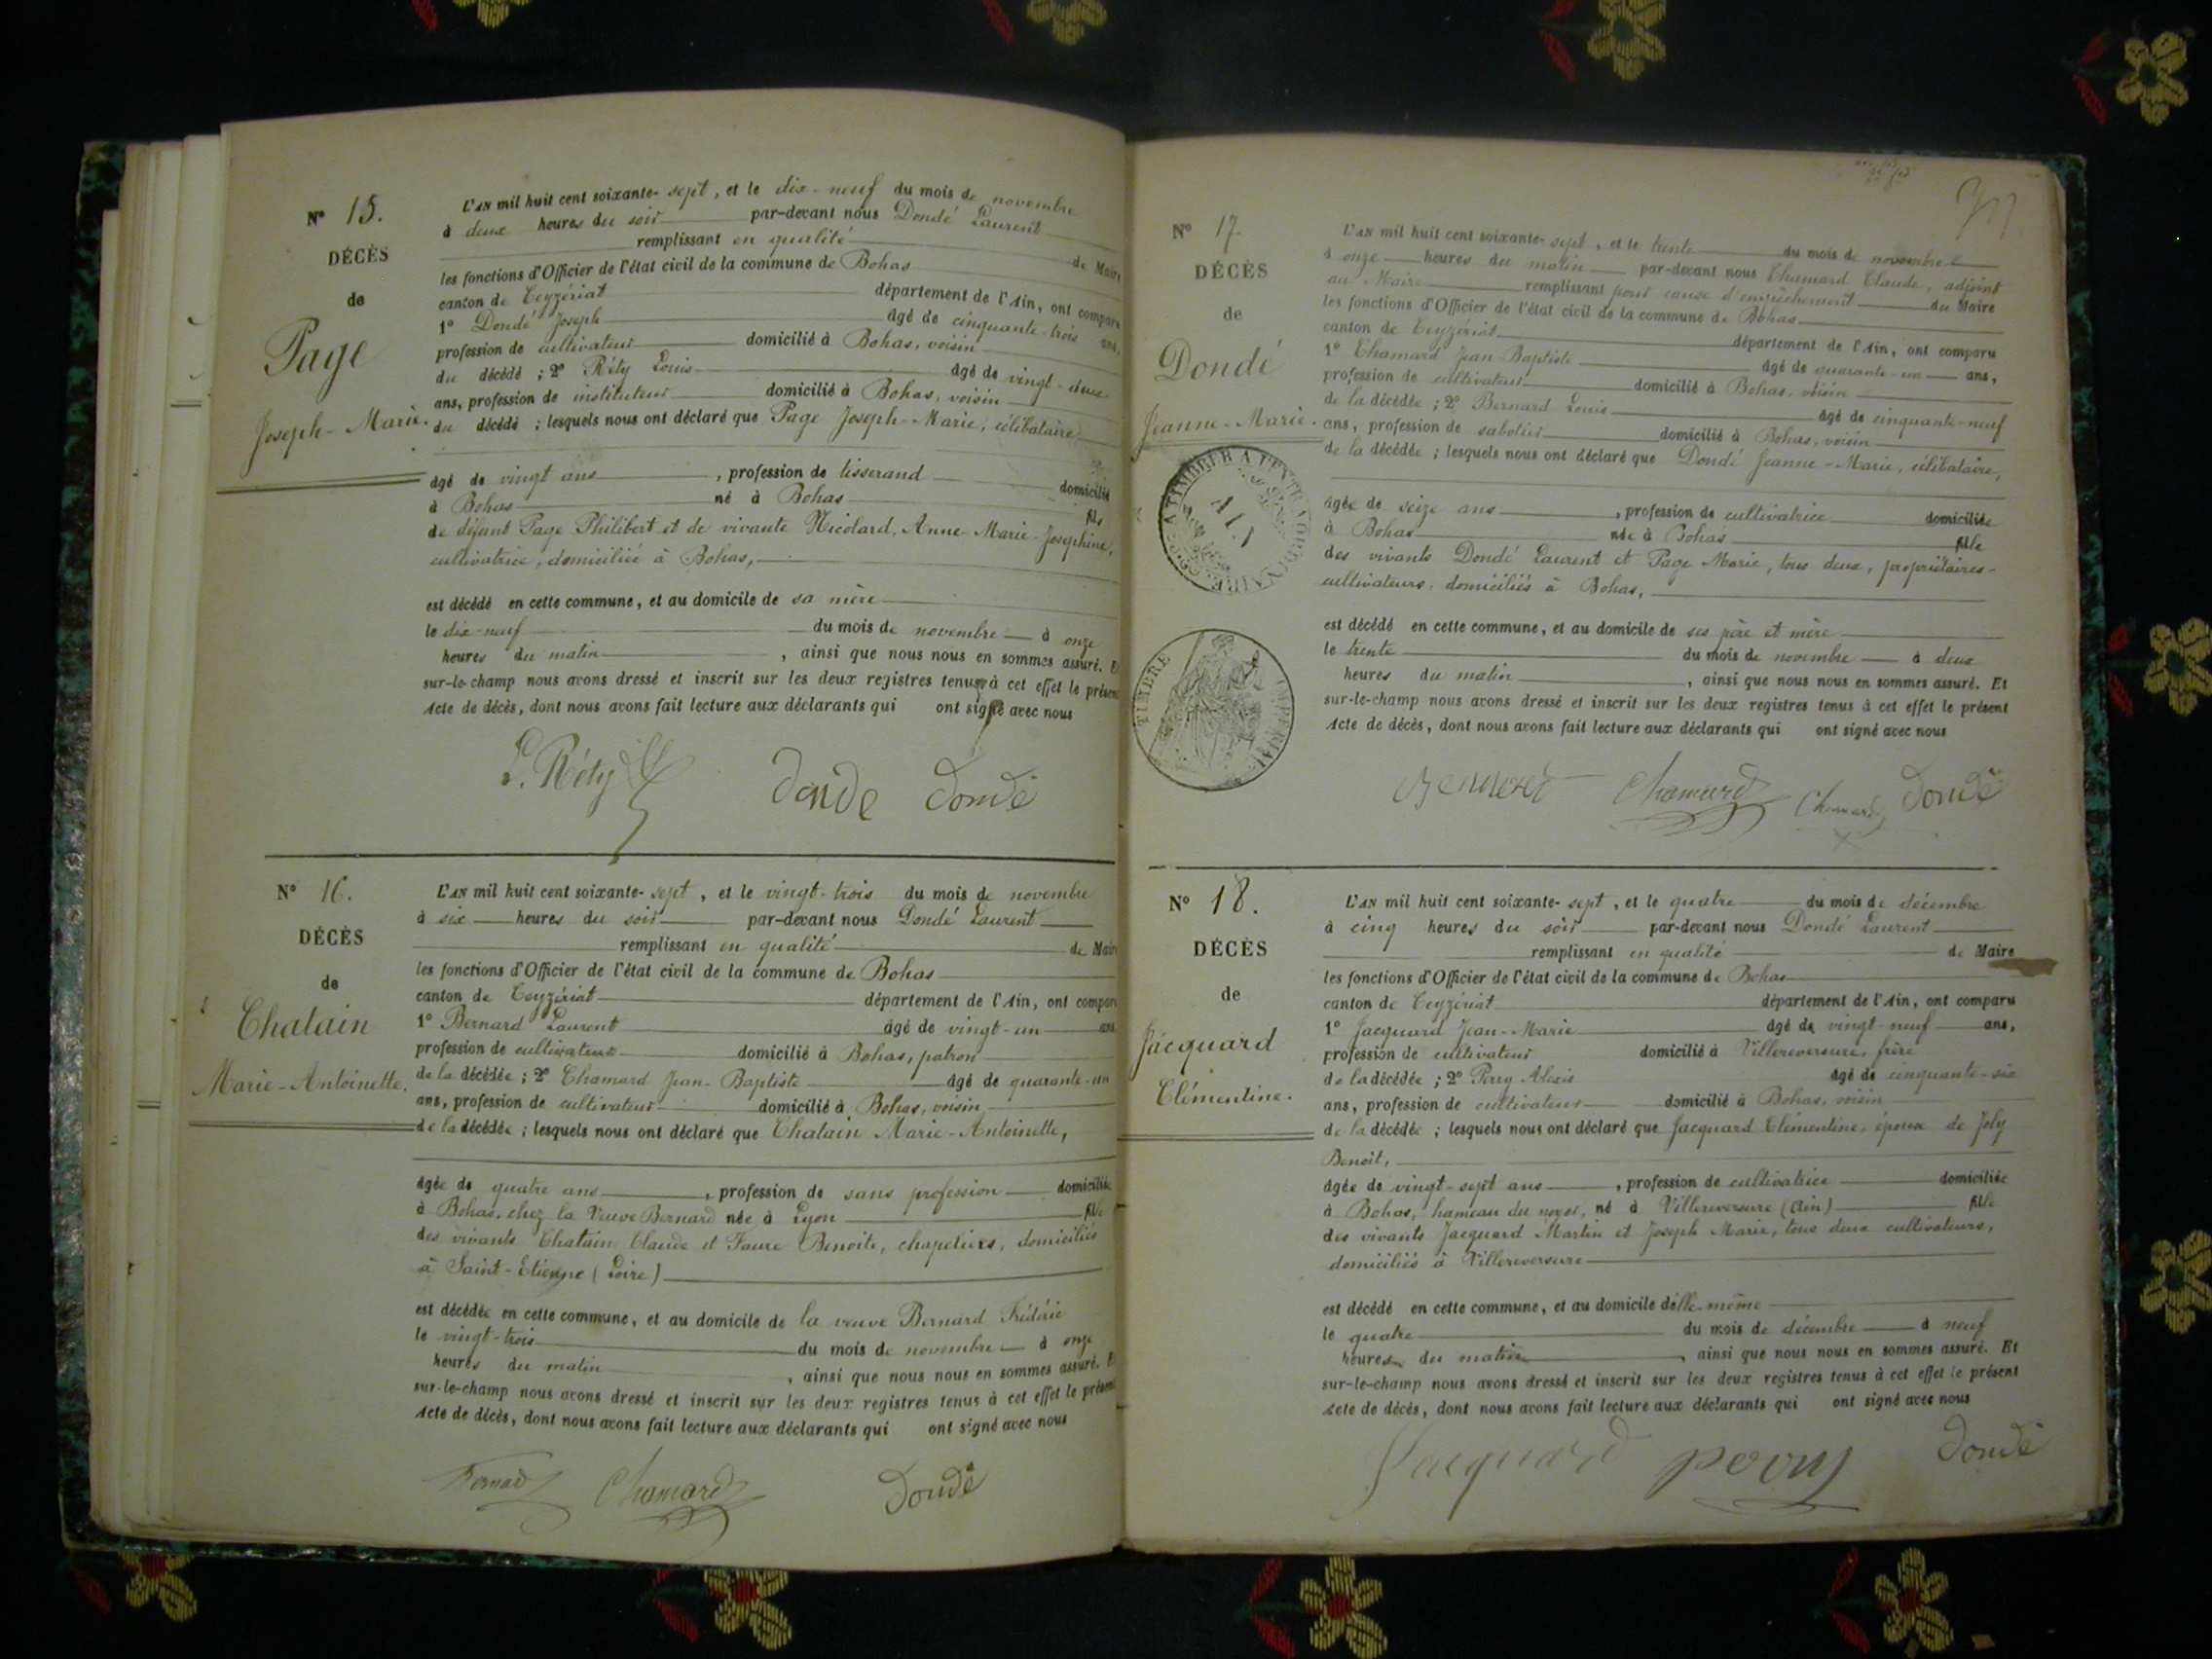 N° 15.
DÉCÈS
de
Page
Joseph-Marie.
L'AN mil huit cent soixante-sept, et le dix-neuf du mois de novembre
à deux heures du soir par-devant nous Dondé Laurent
remplissant en qualité de Maire
les fonctions d'Officier de l'état civil de la commune de Bohas
canton de Ceyzériat département de l'Ain, ont comparu
1° Dondé Joseph âgé de cinquante-trois ans,
profession de cultivateur domicilié à Bohas, voisin
du décédé ; 2° Réty Louis âgé de vingt-deux
ans, profession de instituteur domicilié à Bohas, voisin
du décédé ; lesquels nous ont déclaré que Page Joseph-Marie, célibataire
âgé de vingt ans, profession de tisserand domicilié
à Bohas né à Bohas fils
de défunt Page Philibert et de vivante Nicolard, Anne-Marie-Joséphine,
cultivatrice, domiciliée à Bohas,
est décédé en cette commune, et au domicile de sa mère
le dix-neuf du mois de novembre à onze
heures du matin, ainsi que nous nous en sommes assuré. Et
sur-le-champ nous avons dressé et inscrit sur les deux registres tenus à cet effet le présent
Acte de décès, dont nous avons fait lecture aux déclarants qui ont signé avec nous
L. Réty donde dondé
N° 16.
DÉCÈS
de
Chatain
Marie-Antoinette.
L'AN mil huit cent soixante-sept, et le vingt-trois du mois de novembre
à six heures du soir par-devant nous Dondé Laurent
remplissant en qualité de Maire
les fonctions d'Officier de l'état civil de la commune de Bohas
canton de Ceyzériat département de l'Ain, ont comparu
1° Bernard Laurent âgé de vingt-un ans
profession de cultivateur domicilié à Bohas, patron
de la décédée ; 2° Chamard Jean-Baptiste âgé de quarante-un
ans, profession de cultivateur domicilié à Bohas, voisin
de la décédée ; lesquels nous ont déclaré que Chatain Marie-Antoinette,
âgée de quatre ans, profession de sans profession domiciliée
à Bohas, chez la Veuve Bernard née à Lyon fille
des vivants Chatain Claude et Faure Benoite, chapeliers, domiciliés
à Saint-Etienne (Loire)
est décédée en cette commune, et au domicile de la veuve Bernard Frédéric
le vingt-trois du mois de novembre à onze
heures du matin, ainsi que nous nous en sommes assuré. Et
sur-le-champ nous avons dressé et inscrit sur les deux registres tenus à cet effet le présent
Acte de décès, dont nous avons fait lecture aux déclarants qui ont signé avec nous
Bernard Chamard Dondé
N° 17.
DÉCÈS
de
Dondé
Jeanne-Marie.
TIMBRE IMPERIAL
L'AN mil huit cent soixante-sept, et le trente du mois de novembre
à onze heures du matin par-devant nous Chamard Claude, adjoint
au Maire remplissant pour cause d'empêchement du Maire
les fonctions d'Officier de l'état civil de la commune de Bohas
canton de Ceyzériat département de l'Ain, ont comparu
1° Chamard Jean-Baptiste âgé de quarante-un ans,
profession de cultivateur domicilié à Bohas, voisin
de la décédée ; 2° Bernard Louis âgé de cinquante-neuf
ans, profession de sabotier domicilié à Bohas, voisin
de la décédée ; lesquels nous ont déclaré que Dondé Jeanne-Marie, célibataire,
âgée de seize ans, profession de cultivatrice domiciliée
à Bohas née à Bohas fille
des vivants Dondé Laurent et Page Marie, tous deux, propriétaires-
cultivateurs, domiciliés à Bohas,
est décédé en cette commune, et au domicile de ses père et mère
le trente du mois de novembre à deux
heures du matin, ainsi que nous nous en sommes assuré. Et
sur-le-champ nous avons dressé et inscrit sur les deux registres tenus à cet effet le présent
Acte de décès, dont nous avons fait lecture aux déclarants qui ont signé avec nous
Bernard Chamard Chamard Dondé
N° 18.
DÉCÈS
de
Jacquard
Clémentine.
L'AN mil huit cent soixante-sept, et le quatre du mois de décembre
à cinq heures du soir par-devant nous Dondé Laurent
remplissant en qualité de Maire
les fonctions d'Officier de l'état civil de la commune de Bohas
canton de Ceyzériat département de l'Ain, ont comparu
1° Jacquard Jean-Marie âgé de vingt-neuf ans,
profession de cultivateur domicilié à Villereversure, frère
de la décédée ; 2° Perry Alexis âgé de cinquante-six
ans, profession de cultivateur domicilié à Bohas, voisin
de la décédée ; lesquels nous ont déclaré que Jacquard Clémentine, épouse de Joly
Benoit,
âgée de vingt-sept ans, profession de cultivatrice domiciliée
à Bohas, hameau du noyer, né à Villereversure (Ain) fille
des vivants Jacquard Martin et Joseph Marie, tous deux cultivateurs,
domiciliés à Villereversure
est décédé en cette commune, et au domicile d'elle-même
le quatre du mois de décembre à neuf
heures du matin, ainsi que nous nous en sommes assuré. Et
sur-le-champ nous avons dressé et inscrit sur les deux registres tenus à cet effet le présent
Acte de décès, dont nous avons fait lecture aux déclarants qui ont signé avec nous
Jacquard Dondé